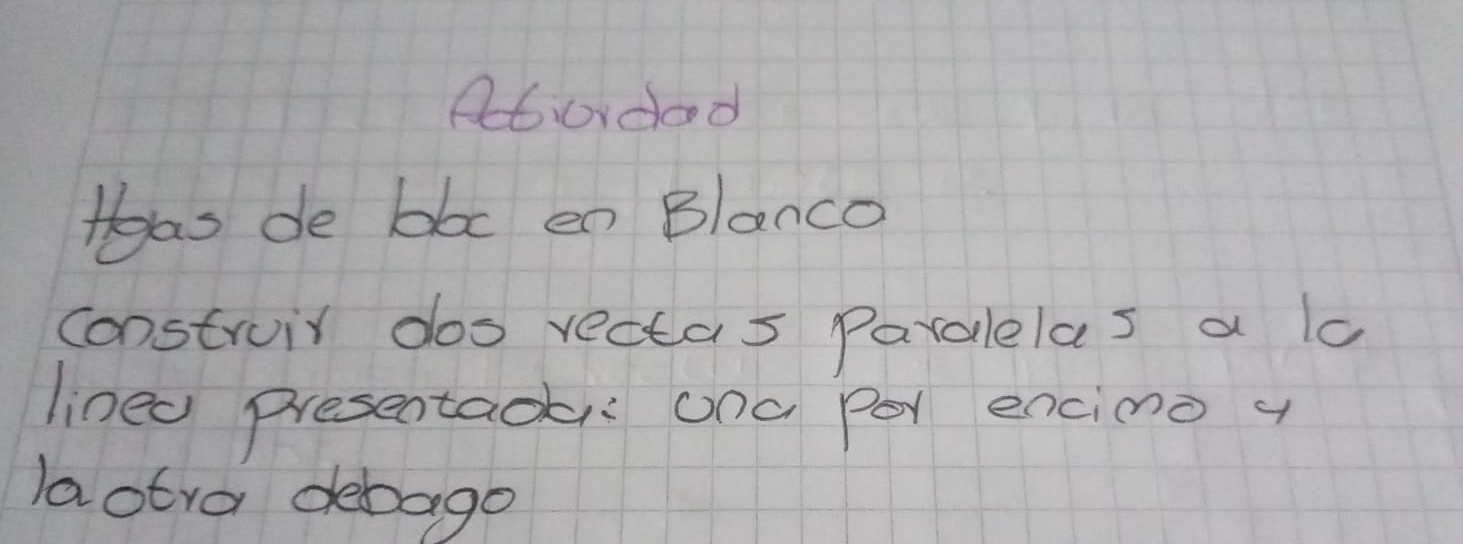 Actividad
Hojas de bloc en Blanco
construir dos rectas paralelas a la
linea presentada: una por encima y
la otra debago